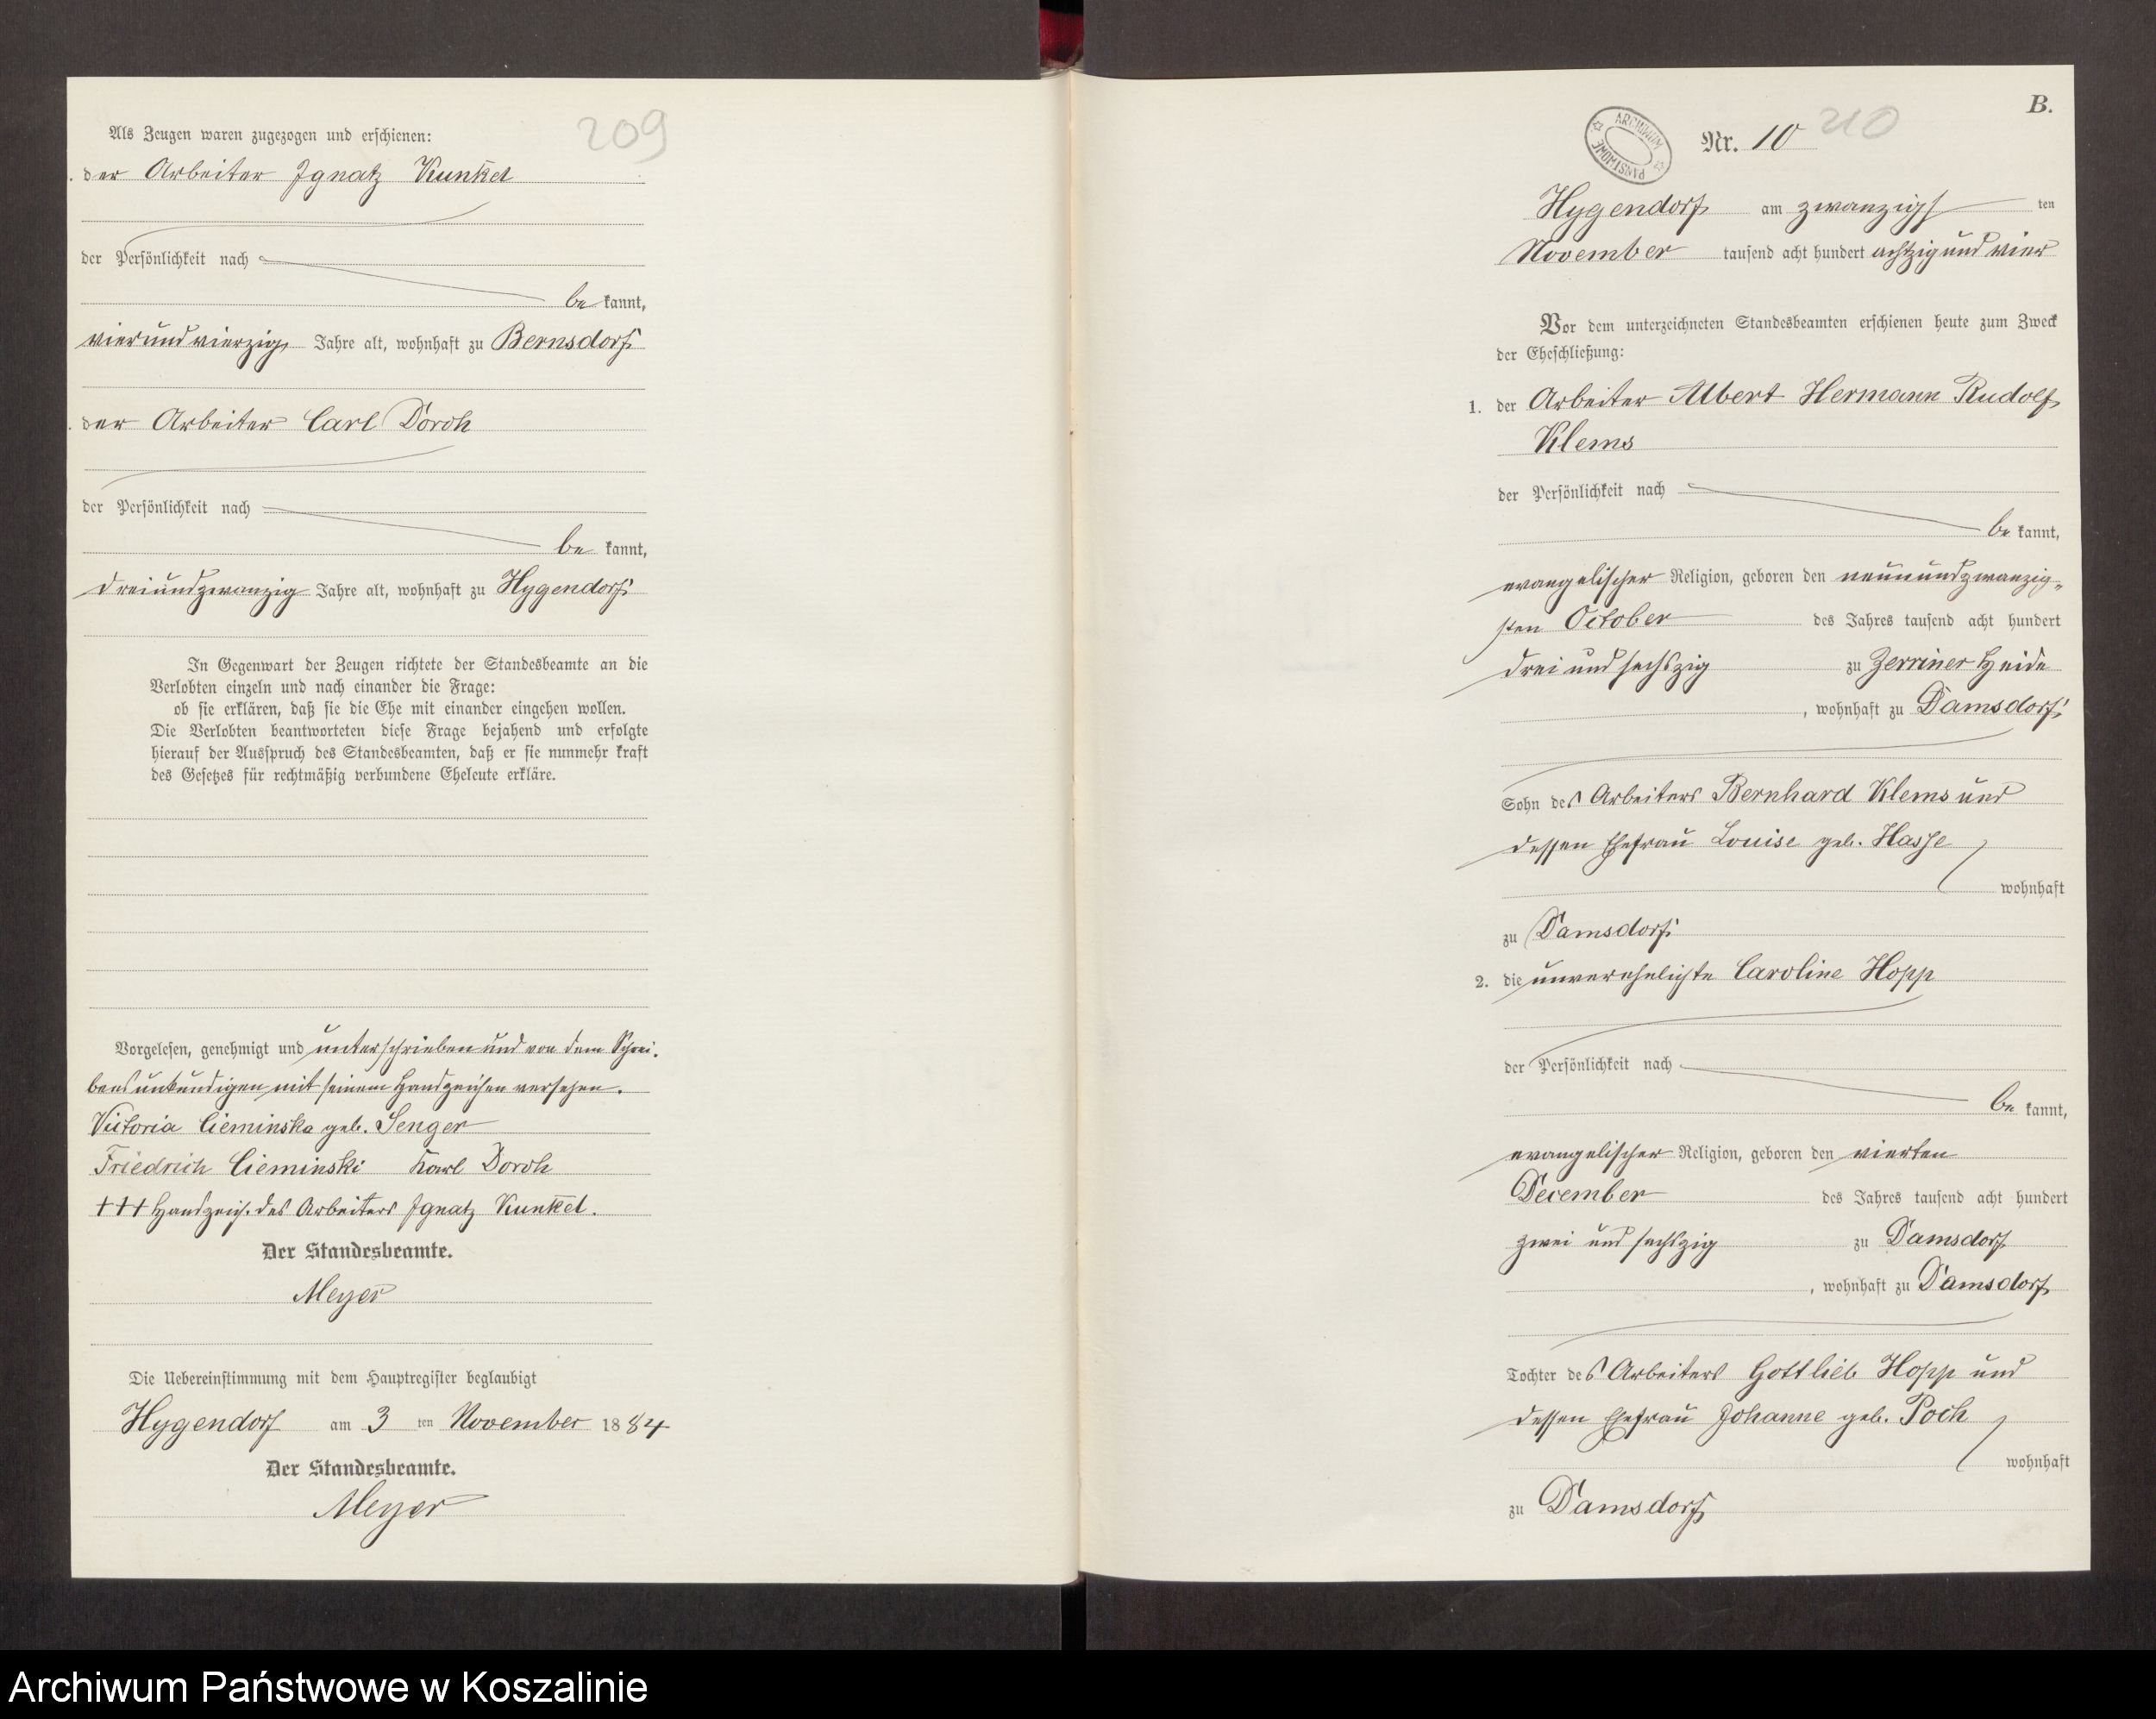 209
Als Zeugen waren zugezogen und erschienen:
der Arbeiter Ignatz Kunkel
der Persönlichkeit nach
be kannt,
vierundvierzig Jahre alt, wohnhaft zu Bernsdorf
der Arbeiter Carl Doroh
der Persönlichkeit nach
be kannt,
dreiundzwanzig Jahre alt, wohnhaft zu Hygendorf
In Gegenwart der Zeugen richtete der Standesbeamte an die
Verlobten einzeln und nach einander die Frage:
ob sie erklären, daß sie die Ehe mit einander eingehen wollen.
Die Verlobten beantworteten diese Frage bejahend und erfolgte
hierauf der Ausspruch des Standesbeamten, daß er sie nunmehr kraft
des Gesetzes für rechtmäßig verbundene Eheleute erkläre.
Vorgelesen, genehmigt und unterschrieben und von dem Schrei-
bensunkundigen mit seinem Handzeichen versehen.
Victoria Cieminska geb. Senger
Friedrich Cieminski Karl Doroh
+++ Handzeich. des Arbeiters Ignatz Kunkel.
Der Standesbeamte.
Meyer
Die Uebereinstimmung mit dem Hauptregister beglaubigt
Hygendorf am 3 ten November 1884
Der Standesbeamte.
Meyer
B.
ARCHIWUM PAŃSTWOWE
Nr. 10 210
Hygendorf am zwanzigsten
November tausend acht hundert achtzig und vier
Vor dem unterzeichneten Standesbeamten erschienen heute zum Zweck
der Eheschließung:
1. der Arbeiter Albert Hermann Rudolf
Klems
der Persönlichkeit nach
be kannt,
evangelischer Religion, geboren den neunundzwanzig-
sten October des Jahres tausend acht hundert
drei und sechszig zu Zerriner Heide
, wohnhaft zu Damsdorf
Sohn des Arbeiters Bernhard Klems und
dessen Ehefrau Louise geb. Hasse
wohnhaft
zu Damsdorf
2. die unverehelichte Caroline Hopp
der Persönlichkeit nach
be kannt,
evangelischer Religion, geboren den vierten
December des Jahres tausend acht hundert
zwei und sechszig zu Damsdorf
, wohnhaft zu Damsdorf
Tochter des Arbeiters Gottlieb Hopp und
dessen Ehefrau Johanne geb. Poch
wohnhaft
zu Damsdorf
Archiwum Państwowe w Koszalinie